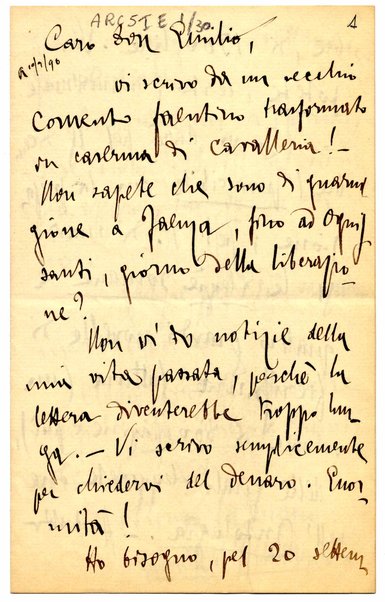 AROSIE 1/30. 1
Caro don Emilio,
vi scrivo da un vecchio
convento faentino trasformato
in caserma di cavalleria! –
Non sapete che sono di guarni
gione a Faenza, fino ad Ognis
santi, giorno della liberazio
ne?
Non vi do notizie della
mia vita passata, perchè la
lettera diventerebbe troppo lun
ga. – Vi scrivo semplicemente
per chiedervi del denaro. Enor
mità!
Ho bisogno, pel 20 settem